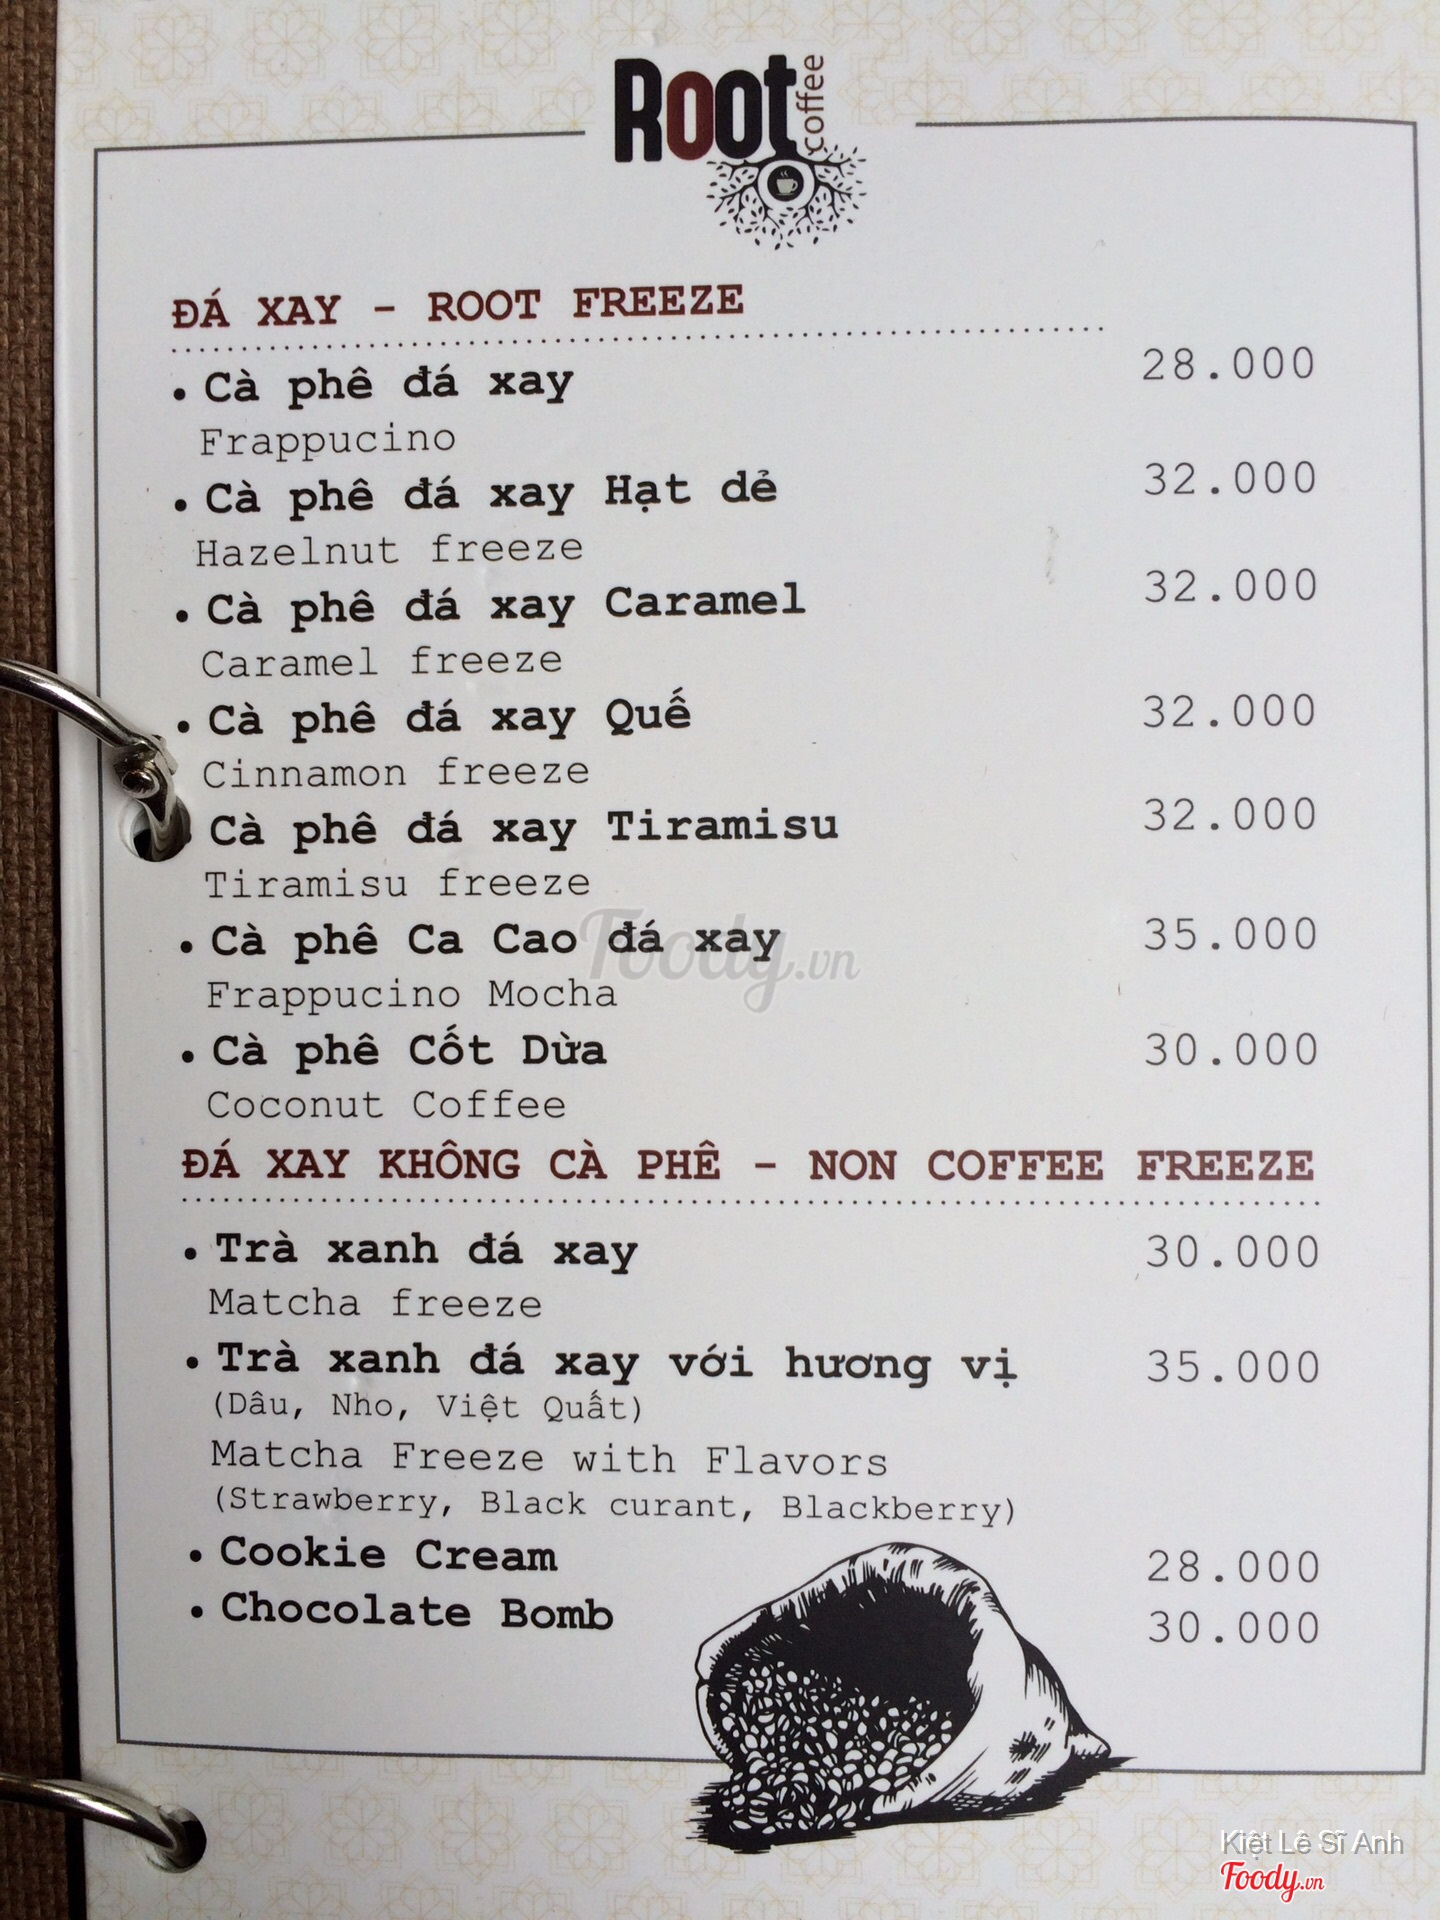 Root coffee
ĐÁ XAY - ROOT FREEZE
• Cà phê đá xay 28.000
Frappucino
• Cà phê đá xay Hạt dẻ 32.000
Hazelnut freeze
• Cà phê đá xay Caramel 32.000
Caramel freeze
• Cà phê đá xay Quế 32.000
Cinnamon freeze
Cà phê đá xay Tiramisu 32.000
Tiramisu freeze
• Cà phê Ca Cao đá xay 35.000
Foody.vn
Frappucino Mocha
• Cà phê Cốt Dừa 30.000
Coconut Coffee
ĐÁ XAY KHÔNG CÀ PHÊ - NON COFFEE FREEZE
• Trà xanh đá xay 30.000
Matcha freeze
• Trà xanh đá xay với hương vị 35.000
(Dâu, Nho, Việt Quất)
Matcha Freeze with Flavors
(Strawberry, Black curant, Blackberry)
• Cookie Cream 28.000
• Chocolate Bomb 30.000
Kiệt Lê Sĩ Anh
Foody.vn